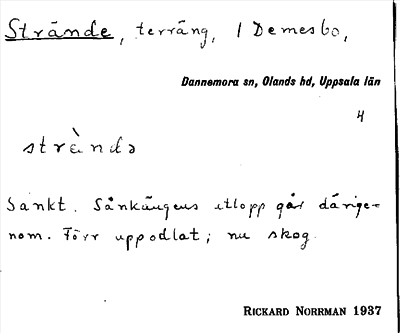 Strände, terräng, i Demesbo,
Dannemora sn, Olands hd, Uppsala län
4
strὰndə
Sankt. Sånkängens utlopp går därige-
nom. Förr uppodlat; nu skog.
RICKARD NORRMAN 1937